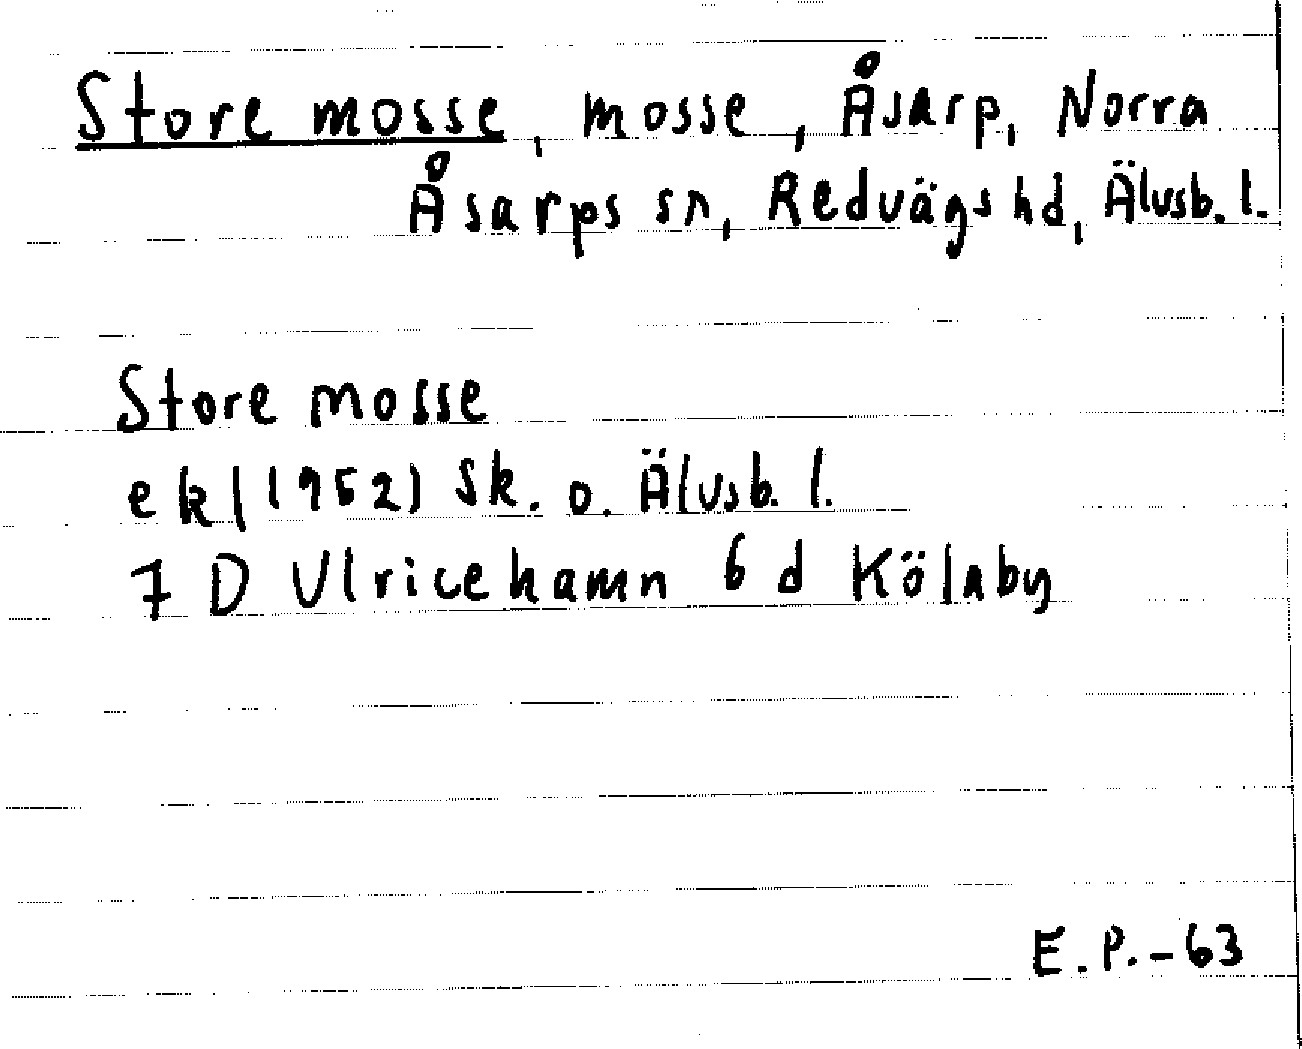 Store mosse, mosse, Åsarp, Norra
Åsarps sn, Redvägs hd, Älvsb. l.
Store mosse
ek (1952) Sk. o. Älvsb. l.
7 D Ulricehamn 6 d Kölaby
E.P.-63